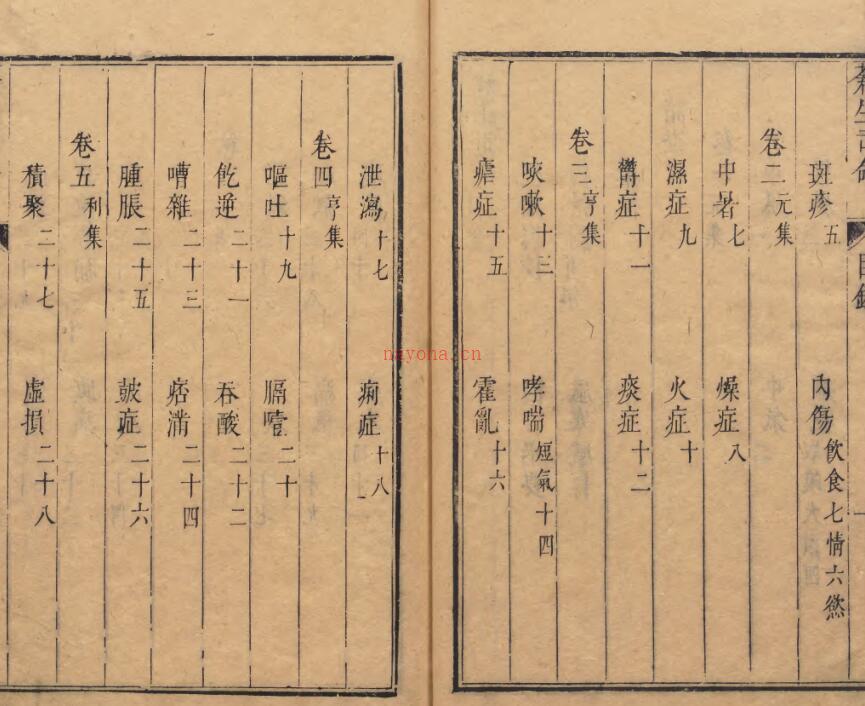 蒼生司命 目錄 一
斑疹五 內傷飲食七情六慾
卷二元集
中暑七 燥症八
濕症九 火症十
鬱症十一 痰症十二
卷三亨集
咳嗽十三 哮喘短氣十四
瘧症十五 霍亂十六
泄瀉十七 痢症十八
卷四亨集
嘔吐十九 膈噎二十
飢逆二十一 吞酸二十二
嘈雜二十三 痞滿二十四
腫脹二十五 皷症二十六
卷五利集
積聚二十七 虛損二十八
nayona.cn